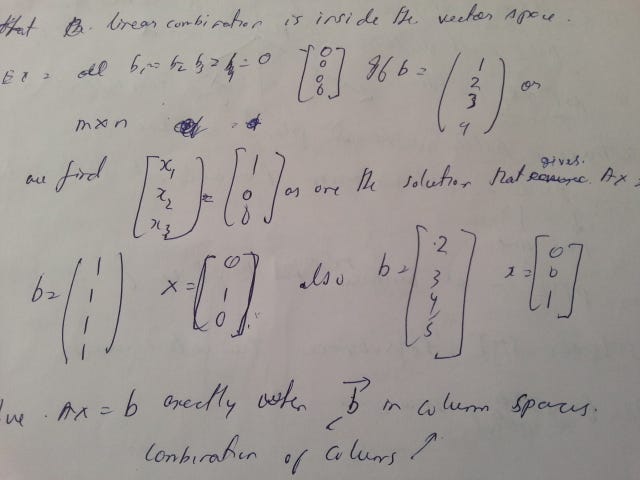 that a linear combination is inside the vector space.
Ex = all b₁ = b₂ b₃ = b₄ = 0 [0 0 0 0] If b = (1 2 3 4) or
m×n
we find [x₁ x₂ x₃] = [1 0 0] as one the solution that gives. Ax =
b = (1 1 1 1) x = [0 1 0] also b = [2 3 4 5] x = [0 0 1]
Ax = b exactly when b⃗ in column spaces.
Combination of colums